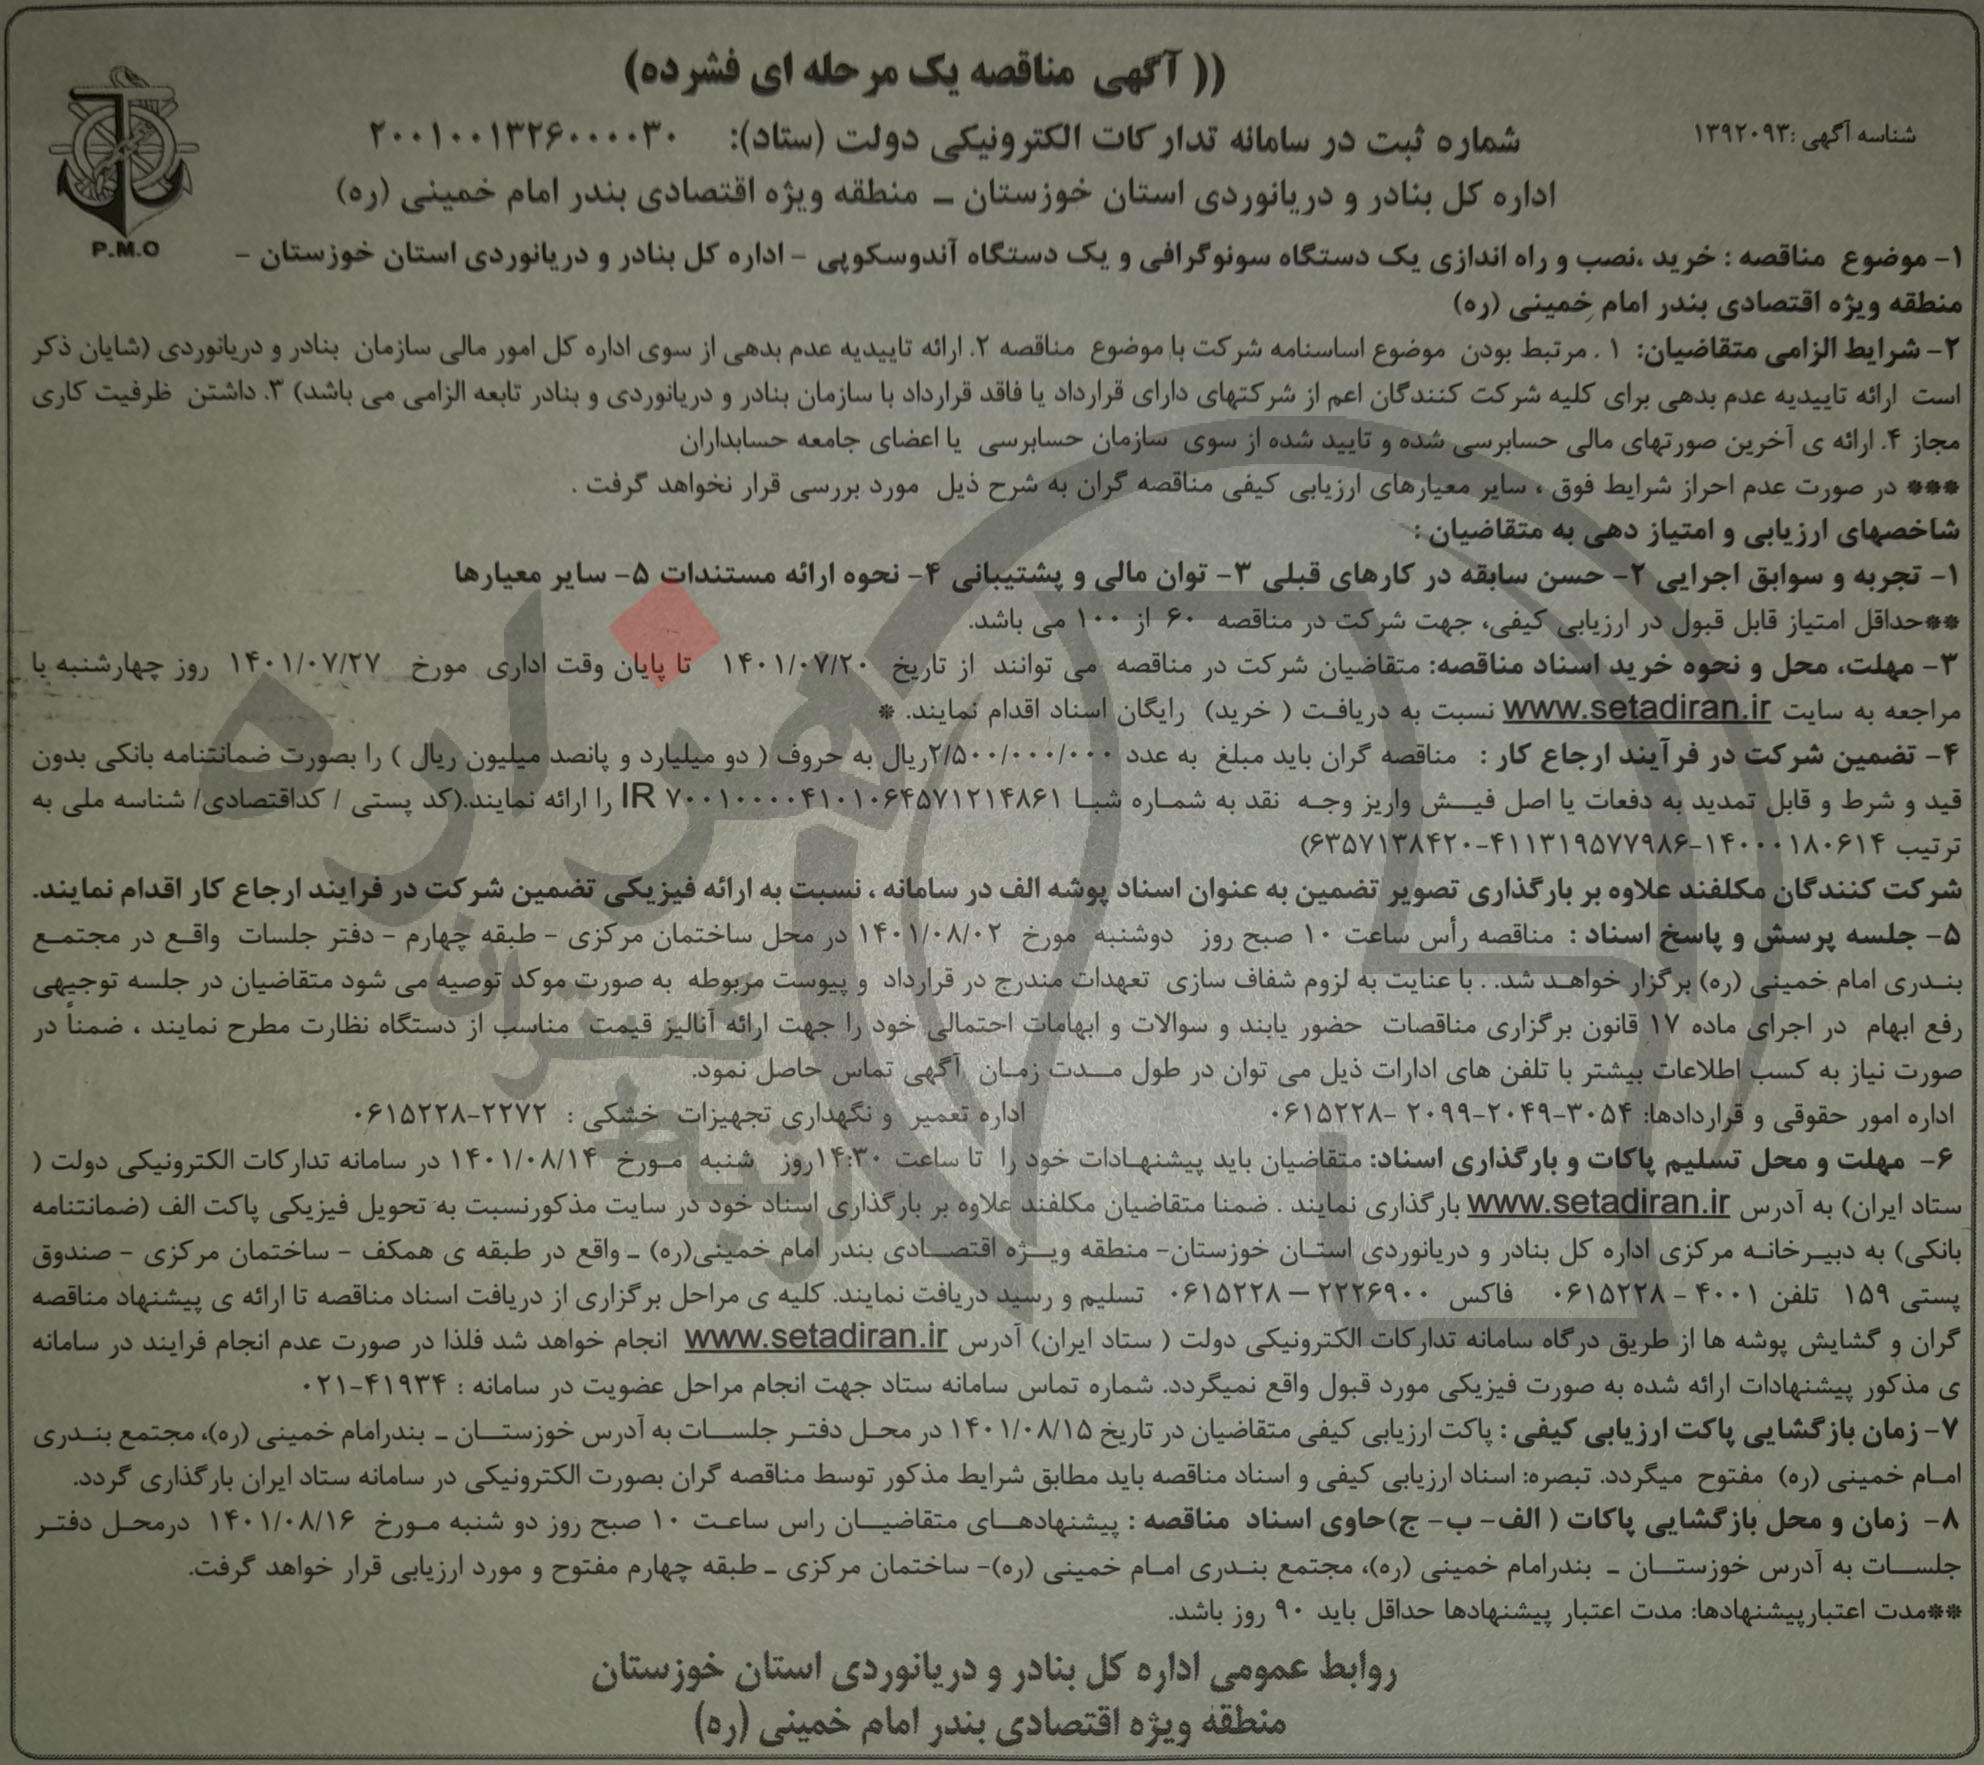 (( آگهی مناقصه یک مرحله ای فشرده)
شناسه آگهی :۱۳۹۲۰۹۳
شماره ثبت در سامانه تدارکات الکترونیکی دولت (ستاد): ۲۰۰۱۰۰۱۳۲۶۰۰۰۰۳۰
اداره کل بنادر و دریانوردی استان خوزستان ـ منطقه ویژه اقتصادی بندر امام خمینی (ره)
P.M.O
۱- موضوع مناقصه : خرید ،نصب و راه اندازی یک دستگاه سونوگرافی و یک دستگاه آندوسکوپی - اداره کل بنادر و دریانوردی استان خوزستان -
منطقه ویژه اقتصادی بندر امام خمینی (ره)
۲- شرایط الزامی متقاضیان: ۱ . مرتبط بودن موضوع اساسنامه شرکت با موضوع مناقصه ۲. ارائه تاییدیه عدم بدهی از سوی اداره کل امور مالی سازمان بنادر و دریانوردی (شایان ذکر
است ارائه تاییدیه عدم بدهی برای کلیه شرکت کنندگان اعم از شرکتهای دارای قرارداد یا فاقد قرارداد با سازمان بنادر و دریانوردی و بنادر تابعه الزامی می باشد) ۳. داشتن ظرفیت کاری
مجاز ۴. ارائه ی آخرین صورتهای مالی حسابرسی شده و تایید شده از سوی سازمان حسابرسی یا اعضای جامعه حسابداران
*** در صورت عدم احراز شرایط فوق ، سایر معیارهای ارزیابی کیفی مناقصه گران به شرح ذیل مورد بررسی قرار نخواهد گرفت .
شاخصهای ارزیابی و امتیاز دهی به متقاضیان :
۱- تجربه و سوابق اجرایی ۲- حسن سابقه در کارهای قبلی ۳- توان مالی و پشتیبانی ۴- نحوه ارائه مستندات ۵- سایر معیارها
**حداقل امتیاز قابل قبول در ارزیابی کیفی، جهت شرکت در مناقصه ۶۰ از ۱۰۰ می باشد.
۳- مهلت، محل و نحوه خرید اسناد مناقصه: متقاضیان شرکت در مناقصه می توانند از تاریخ ۱۴۰۱/۰۷/۲۰ تا پایان وقت اداری مورخ ۱۴۰۱/۰۷/۲۷ روز چهارشنبه با
مراجعه به سایت www.setadiran.ir نسبت به دریافت ( خرید) رایگان اسناد اقدام نمایند. *
۴- تضمین شرکت در فرآیند ارجاع کار : مناقصه گران باید مبلغ به عدد ۲/۵۰۰/۰۰۰/۰۰۰ریال به حروف ( دو میلیارد و پانصد میلیون ریال ) را بصورت ضمانتنامه بانکی بدون
قید و شرط و قابل تمدید به دفعات یا اصل فیش واریز وجه نقد به شماره شبا IR ۷۰۰۱۰۰۰۰۴۱۰۱۰۶۴۵۷۱۲۱۴۸۶۱ را ارائه نمایند.(کد پستی / کداقتصادی/ شناسه ملی به
ترتیب ۱۴۰۰۰۱۸۰۶۱۴-۴۱۱۳۱۹۵۷۷۹۸۶-۶۳۵۷۱۳۸۴۲۰)
شرکت کنندگان مکلفند علاوه بر بارگذاری تصویر تضمین به عنوان اسناد پوشه الف در سامانه ، نسبت به ارائه فیزیکی تضمین شرکت در فرایند ارجاع کار اقدام نمایند.
۵- جلسه پرسش و پاسخ اسناد : مناقصه رأس ساعت ۱۰ صبح روز دوشنبه مورخ ۱۴۰۱/۰۸/۰۲ در محل ساختمان مرکزی - طبقه چهارم - دفتر جلسات واقع در مجتمع
بندری امام خمینی (ره) برگزار خواهد شد. . با عنایت به لزوم شفاف سازی تعهدات مندرج در قرارداد و پیوست مربوطه به صورت موکد توصیه می شود متقاضیان در جلسه توجیهی
رفع ابهام در اجرای ماده ۱۷ قانون برگزاری مناقصات حضور یابند و سوالات و ابهامات احتمالی خود را جهت ارائه آنالیز قیمت مناسب از دستگاه نظارت مطرح نمایند ، ضمناً در
صورت نیاز به کسب اطلاعات بیشتر با تلفن های ادارات ذیل می توان در طول مدت زمان آگهی تماس حاصل نمود.
اداره امور حقوقی و قراردادها: ۳۰۵۴-۲۰۴۹-۲۰۹۹ -۰۶۱۵۲۲۸ اداره تعمیر و نگهداری تجهیزات خشکی : ۲۲۷۲-۰۶۱۵۲۲۸
۶- مهلت و محل تسلیم پاکات و بارگذاری اسناد: متقاضیان باید پیشنهادات خود را تا ساعت ۱۴:۳۰روز شنبه مورخ ۱۴۰۱/۰۸/۱۴ در سامانه تدارکات الکترونیکی دولت (
ستاد ایران) به آدرس www.setadiran.ir بارگذاری نمایند . ضمنا متقاضیان مکلفند علاوه بر بارگذاری اسناد خود در سایت مذکورنسبت به تحویل فیزیکی پاکت الف (ضمانتنامه
بانکی) به دبیرخانه مرکزی اداره کل بنادر و دریانوردی استان خوزستان- منطقه ویژه اقتصادی بندر امام خمینی(ره) ـ واقع در طبقه ی همکف - ساختمان مرکزی - صندوق
پستی ۱۵۹ تلفن ۴۰۰۱ - ۰۶۱۵۲۲۸ فاکس ۲۲۲۶۹۰۰ – ۰۶۱۵۲۲۸ تسلیم و رسید دریافت نمایند. کلیه ی مراحل برگزاری از دریافت اسناد مناقصه تا ارائه ی پیشنهاد مناقصه
گران و گشایش پوشه ها از طریق درگاه سامانه تدارکات الکترونیکی دولت ( ستاد ایران) آدرس www.setadiran.ir انجام خواهد شد فلذا در صورت عدم انجام فرایند در سامانه
ی مذکور پیشنهادات ارائه شده به صورت فیزیکی مورد قبول واقع نمیگردد. شماره تماس سامانه ستاد جهت انجام مراحل عضویت در سامانه : ۴۱۹۳۴-۰۲۱
۷- زمان بازگشایی پاکت ارزیابی کیفی : پاکت ارزیابی کیفی متقاضیان در تاریخ ۱۴۰۱/۰۸/۱۵ در محل دفتر جلسات به آدرس خوزستان ـ بندرامام خمینی (ره)، مجتمع بندری
امام خمینی (ره) مفتوح میگردد. تبصره: اسناد ارزیابی کیفی و اسناد مناقصه باید مطابق شرایط مذکور توسط مناقصه گران بصورت الکترونیکی در سامانه ستاد ایران بارگذاری گردد.
۸- زمان و محل بازگشایی پاکات ( الف- ب- ج)حاوی اسناد مناقصه : پیشنهادهای متقاضیان راس ساعت ۱۰ صبح روز دو شنبه مورخ ۱۴۰۱/۰۸/۱۶ درمحل دفتر
جلسات به آدرس خوزستان ـ بندرامام خمینی (ره)، مجتمع بندری امام خمینی (ره)- ساختمان مرکزی ـ طبقه چهارم مفتوح و مورد ارزیابی قرار خواهد گرفت.
**مدت اعتبارپیشنهادها: مدت اعتبار پیشنهادها حداقل باید ۹۰ روز باشد.
روابط عمومی اداره کل بنادر و دریانوردی استان خوزستان
منطقه ویژه اقتصادی بندر امام خمینی (ره)
هزاره